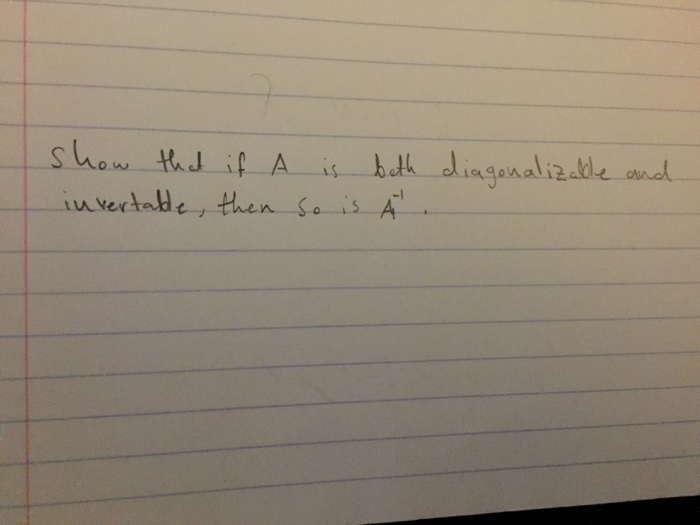 show that if A is both diagonalizable and
invertable, then so is A⁻¹.